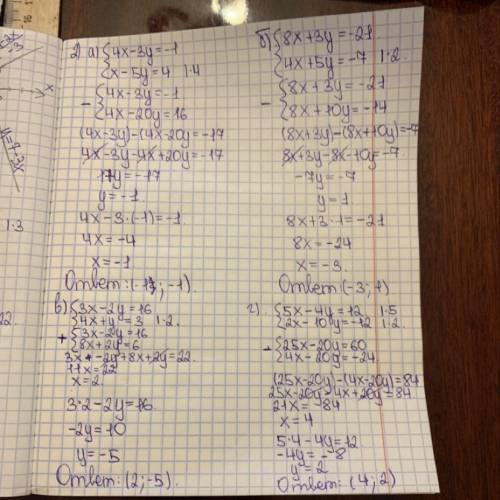 2. а) {4x-3y=-1
x-5y=4 |·4
- {4x-3y=-1
4x-20y=16
(4x-3y)-(4x-20y=-17
4x-3y-4x+20y=-17
17y=-17
y=-1.
4x-3·(-1)=-1.
4x=-4
x=-1
Ответ: (-1; -1).
б) {8x+3y=-21
4x+5y=-7 |·2.
- {8x+3y=-21
8x+10y=-14
(8x+3y)-(8x+10y)=-7
8x+3y-8x-10y=-7
-7y=-7
y=1
8x+3·1=-21
8x=-24
x=-3.
Ответ: (-3; 1)
в) {3x-2y=16
4x+y=3 |·2.
+ {3x-2y=16
8x+2y=6
3x-2y+8x+2y=22.
11x=22
x=2.
3·2-2y=16.
-2y=10
y=-5
Ответ: (2; -5).
г) {5x-4y=12 |·5
2x-10y=-12 |·2.
- {25x-20y=60
4x-20y=-24
(25x-20y)-(4x-20y)=84
25x-20y-4x+20y=84
21x=84
x=4
5·4-4y=12
-4y=-8
y=2
Ответ: (4; 2)
y=7-3x
|·3
22.
x